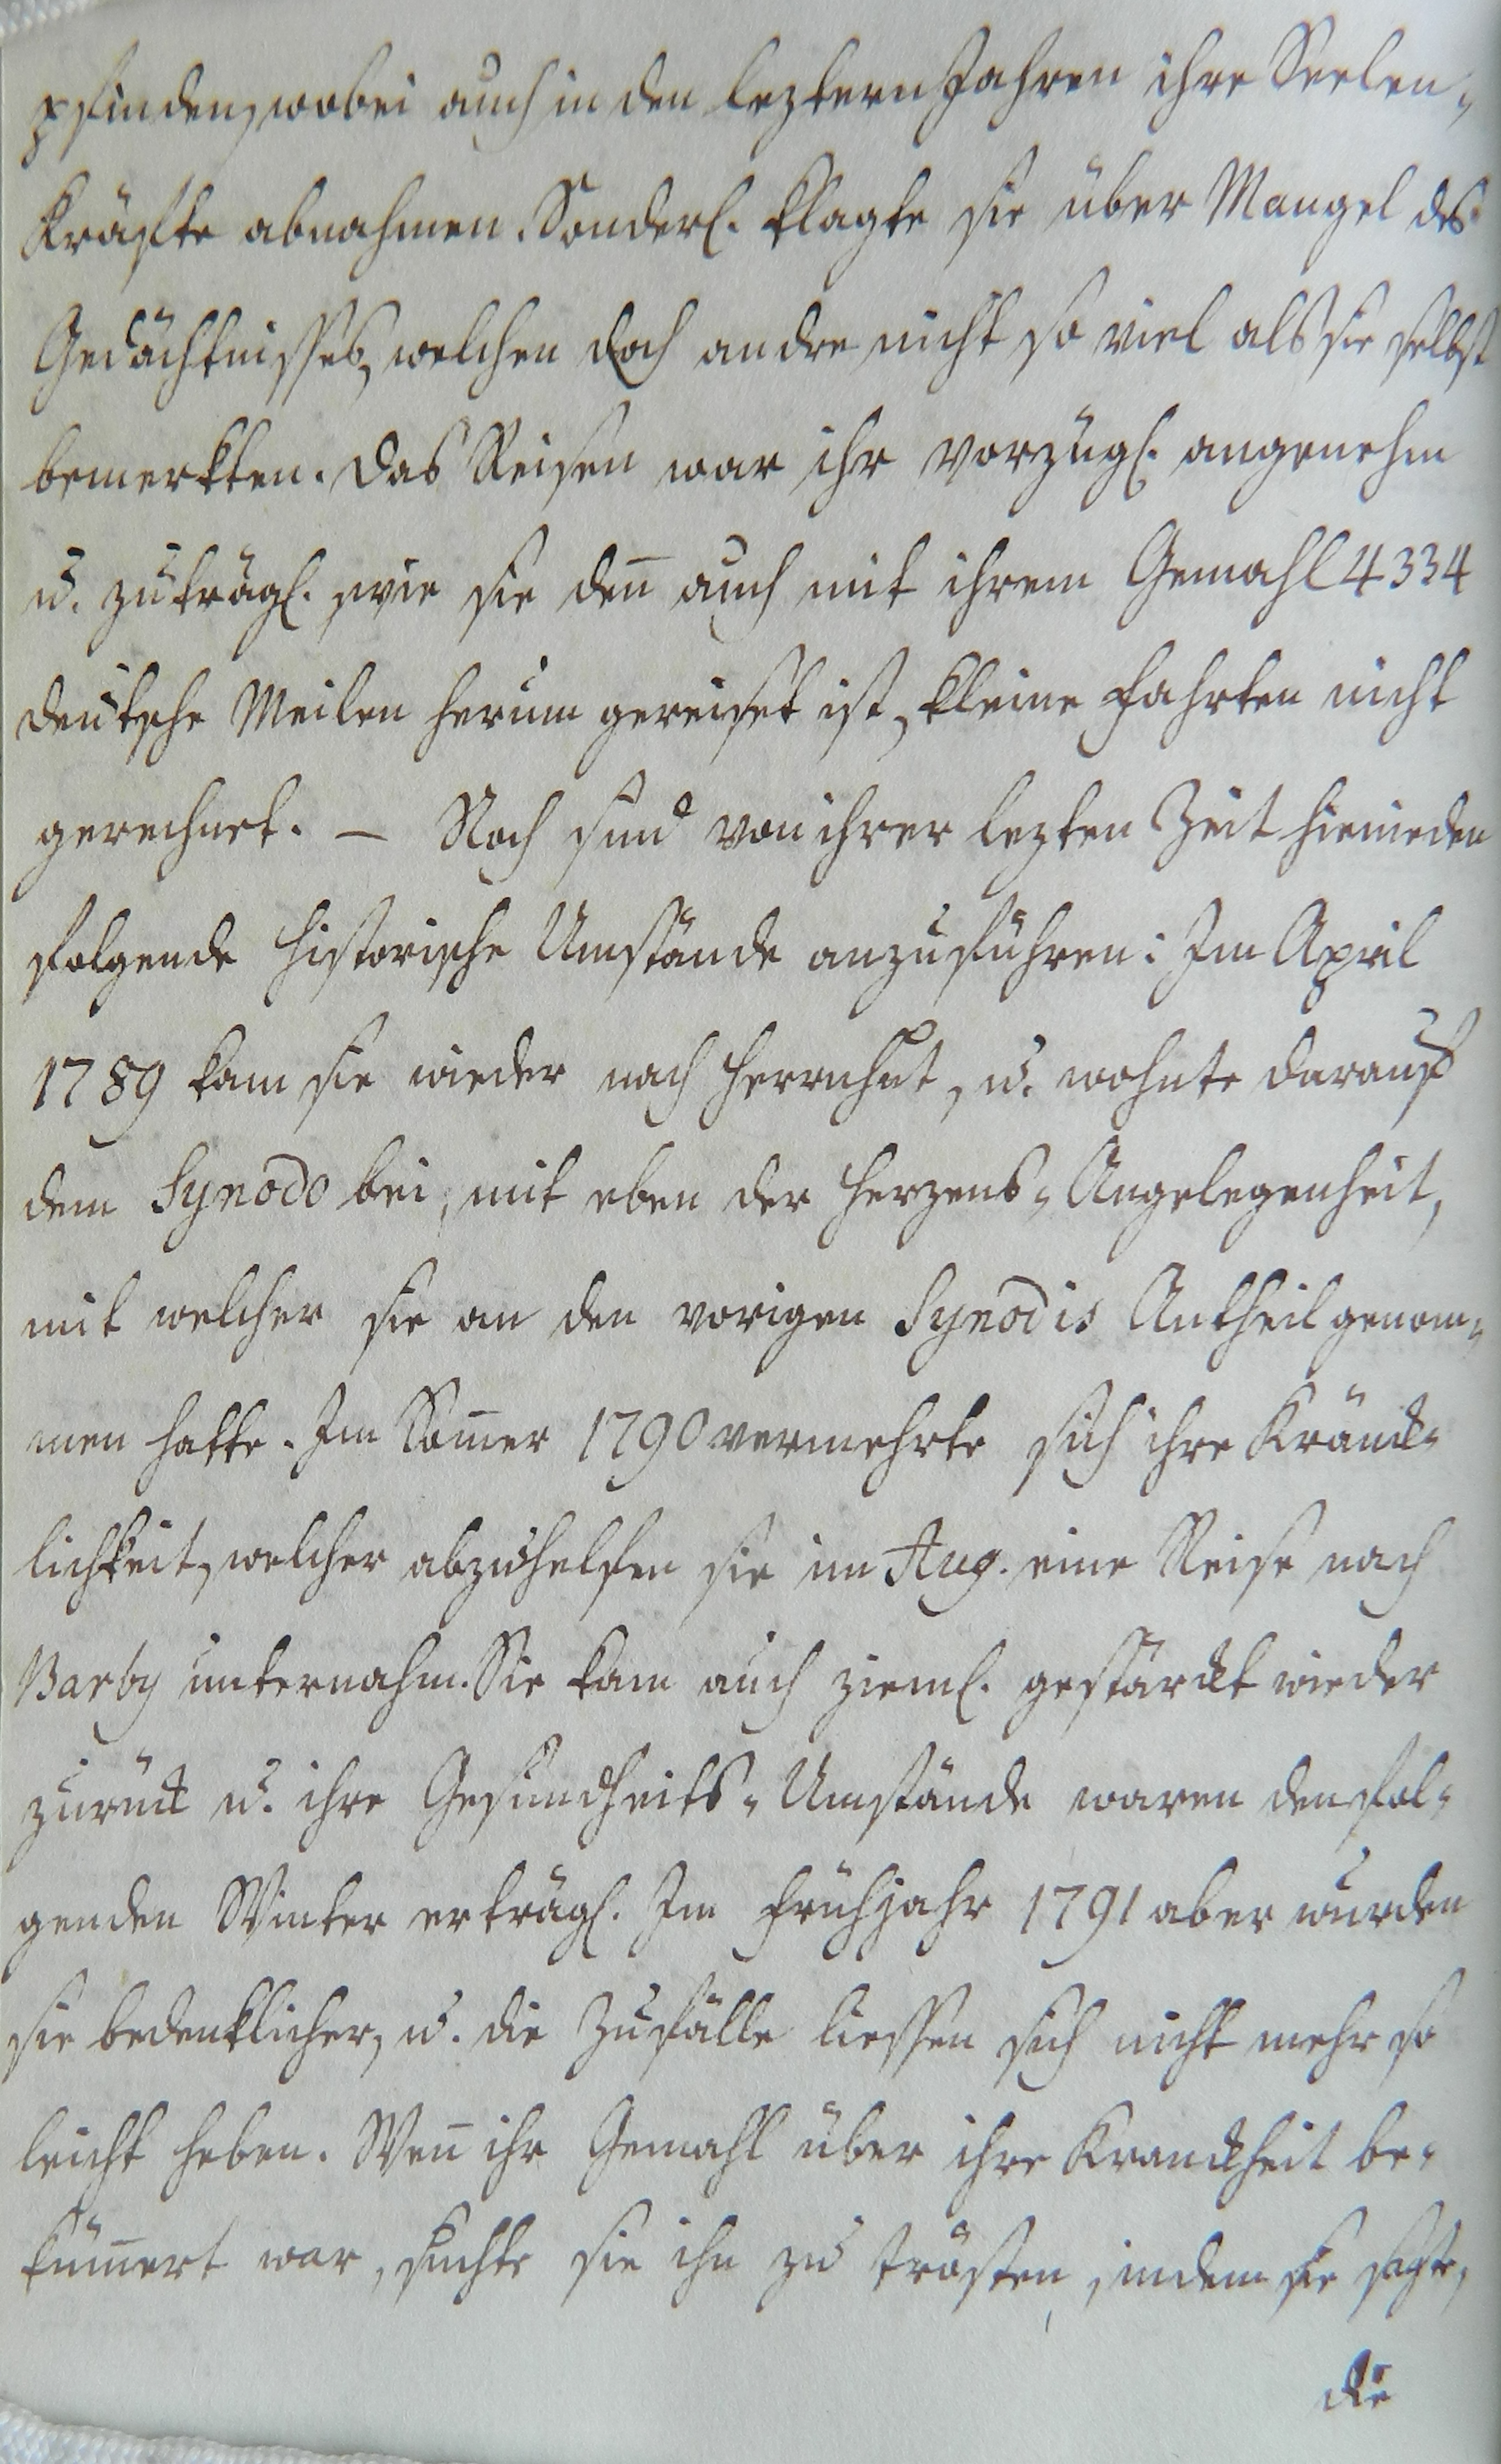 pfinden, wobei auch in den leztern Jahren ihre Seelen-
Kräfte abnahmen. Sonderl. klagte sie über Mangel des
Gedächtnisses, welchen doch andre nicht so viel als sie selbst
bemerkten. Das Reisen war ihr vorzügl. angenehm
u. zuträgl. wie sie deñ auch mit ihrem Gemahl 4334
deutsche Meilen herum gereiset ist, kleine Fahrten nicht
gerechnet. – Noch sind von ihrer lezten Zeit hienieden
folgende historische Umstände anzuführen: Im April
1789 kam sie wieder nach Herrnhut, u. wohnte darauf
dem Synodo bei, mit eben der Herzens-Angelegenheit,
mit welcher sie an den vorigen Synodis Antheil genom-
men hatte. Im Som̃er 1790 vermehrte sich ihre Kränck-
lichkeit, welcher abzuhelfen sie im Aug. eine Reise nach
Barby unternahm. Sie kam auch zieml. gestärckt wieder
zurück u. ihre Gesundheits-Umstände waren den fol-
genden Winter erträgl. Im Frühjahr 1791 aber wurden
sie bedenklicher, u. die Zufälle liessen sich nicht mehr so
leicht heben. Weñ ihr Gemahl über ihre Kranckheit be-
küm̃ert war, suchte sie ihn zu trösten, indem sie sagte,
die